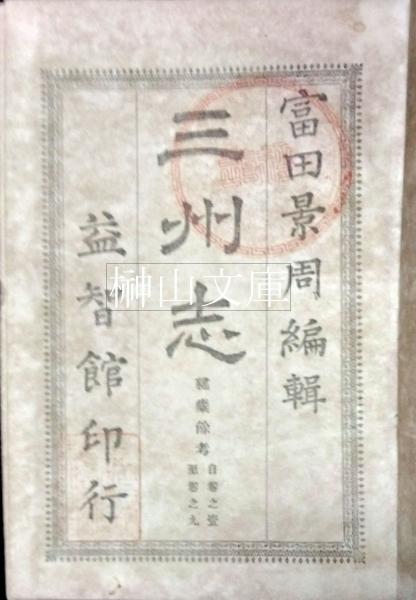 富田景周編輯
三州志
鞬櫜餘考
自卷之壹
至卷之九
益智館印行
榊山文庫